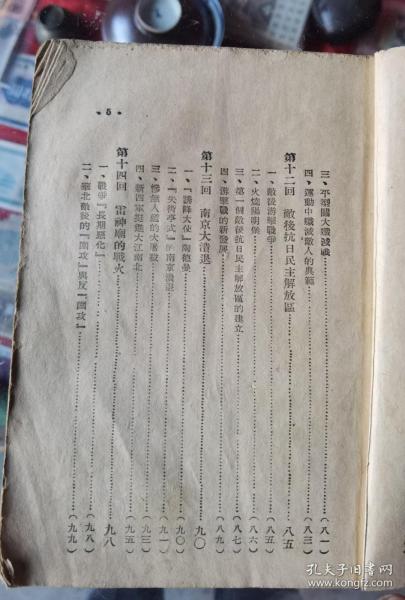 三、平型關大殲滅戰……（八一）
四、運動中殲滅敵人的典範……（八三）
第十二回　敵後抗日民主解放區……八五
一、敵後游擊戰爭……（八五）
二、火燒陽明堡……（八六）
三、第一個敵後抗日民主解放區的建立……（八七）
四、游擊戰的新發展……（八九）
第十三回　南京大潰退……九〇
一、「誘降大使」陶德曼……（九〇）
二、「失街亭式」的南京潰退……（九一）
三、慘無人道的大屠殺……（九三）
四、新四軍挺進大江南北……（九五）
第十四回　雷神廟的戰火……九八
一、戰爭「長期惡化」……（九八）
二、華北敵後的「圍攻」與反「圍攻」……（九九）
·5·
孔夫子旧书网
www.kongfz.com